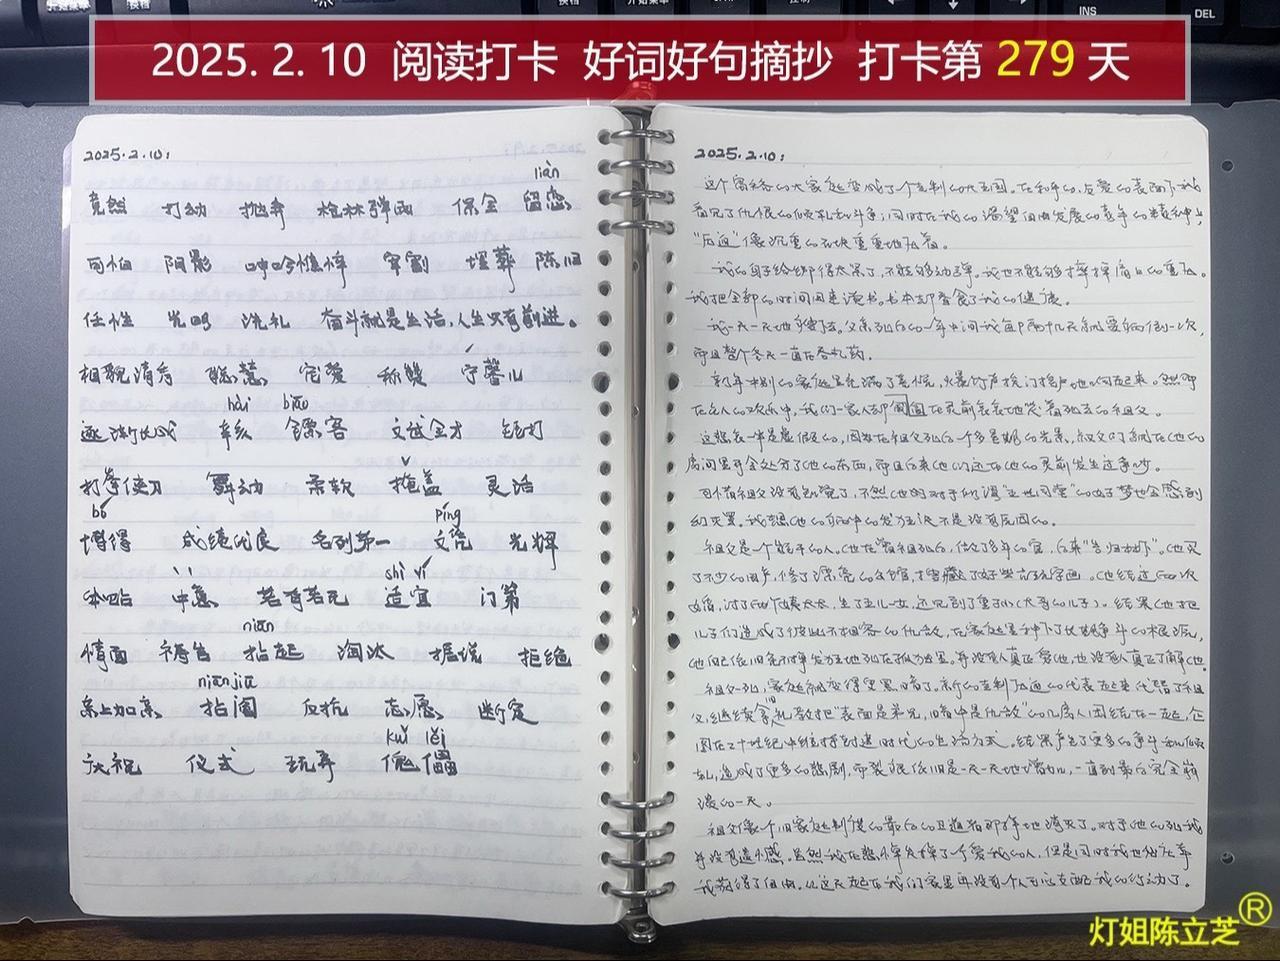 2025. 2. 10 阅读打卡 好词好句摘抄 打卡第 279 天
INS
DEL
2025.2.10:
liàn
竟然 打动 抛弃 枪林弹雨 保全 留恋
可怕 阴影 呻吟憔悴 宰割 埋葬 陈旧
任性 光明 洗礼 奋斗就是生活，人生只有前进。
相貌清秀 聪慧 宠爱 称赞 宁馨儿
hái biāo
逐渐长成 镖客 文武全才 毒打
打拳使刀 舞动 柔软 掩盖 灵活
bó píng
博得 成绩优良 名列第一 文凭 光辉
shì yí
中意 若有若无 适宜 门第
niān
情面 祷告 拈起 淘汰 据说 拒绝
niān jiū
亲上加亲 拈阄 反抗 志愿 断定
kuǐ lěi
庆祝 仪式 玩弄 傀儡
2025.2.10:
这个富裕的大家庭变成了个专制的大王国。在和平的、友爱的表面下我
看见了仇恨的倾轧和斗争；同时在我的渴望自由发展的青年的精神上，
“压迫”像沉重的石块重重地压着。
我的身子给绑得太紧了，不能够动弹。我也不能够摔掉肩上的重压。
我把全部的时间用来读书。书本却蚕食了我的健康。
我一天一天地瘦下去。父亲死后的一年中间我每隔十几天就要病倒一次，
而且整个冬天一直在吞丸药。
这悲哀一半是虚假的，因为在祖父死后一个多星期的光景，叔父们就在他的
房间里开会处分了他的东西，而且后来他们还在他的灵前发生过争吵。
可惜祖父没有知觉了，不然他的对于所谓“五世同堂”的好梦也会感到
幻灭罢。我想他的病中的发狂决不是没有原因的。
祖父是一个能干的人。他在曾祖死后，做了多年的官，后来“告归林下”。他买
了不少的田产，修了漂亮的公馆，搜藏了好些古玩字画。他结过两次
婚，讨了两个姨太太，生了五儿一女，还见到了重孙（大哥的儿子）。结果他把
儿子们造成了彼此不相容的仇敌，在家庭里种下了长期争斗的根源，
他自己依旧免不掉发狂地死在孤独里。并没有人真正爱他，也没有人真正了解他。
祖父一死，家庭就变得更黑暗了。新的专制压迫的代表起来代替了祖
父，继续拿旧礼教把“表面是弟兄，暗中是仇敌”的几房人团结在一起，企
图在二十世纪中维持封建时代的生活方式。结果产生了更多的争斗和倾
轧，造成了更多的悲剧，而裂痕依旧是一天一天地增加，一直到最后完全崩
溃的一天。
祖父像一个旧家庭制度的最后的卫道者那样地消灭了。对于他的死我
并没有遗憾。虽然我在哀悼失掉了一个爱我的人，但是同时我也庆幸
我获得了自由。从这天起在我们家里再没有一个人可以支配我的行动了。
灯姐陈立芝®